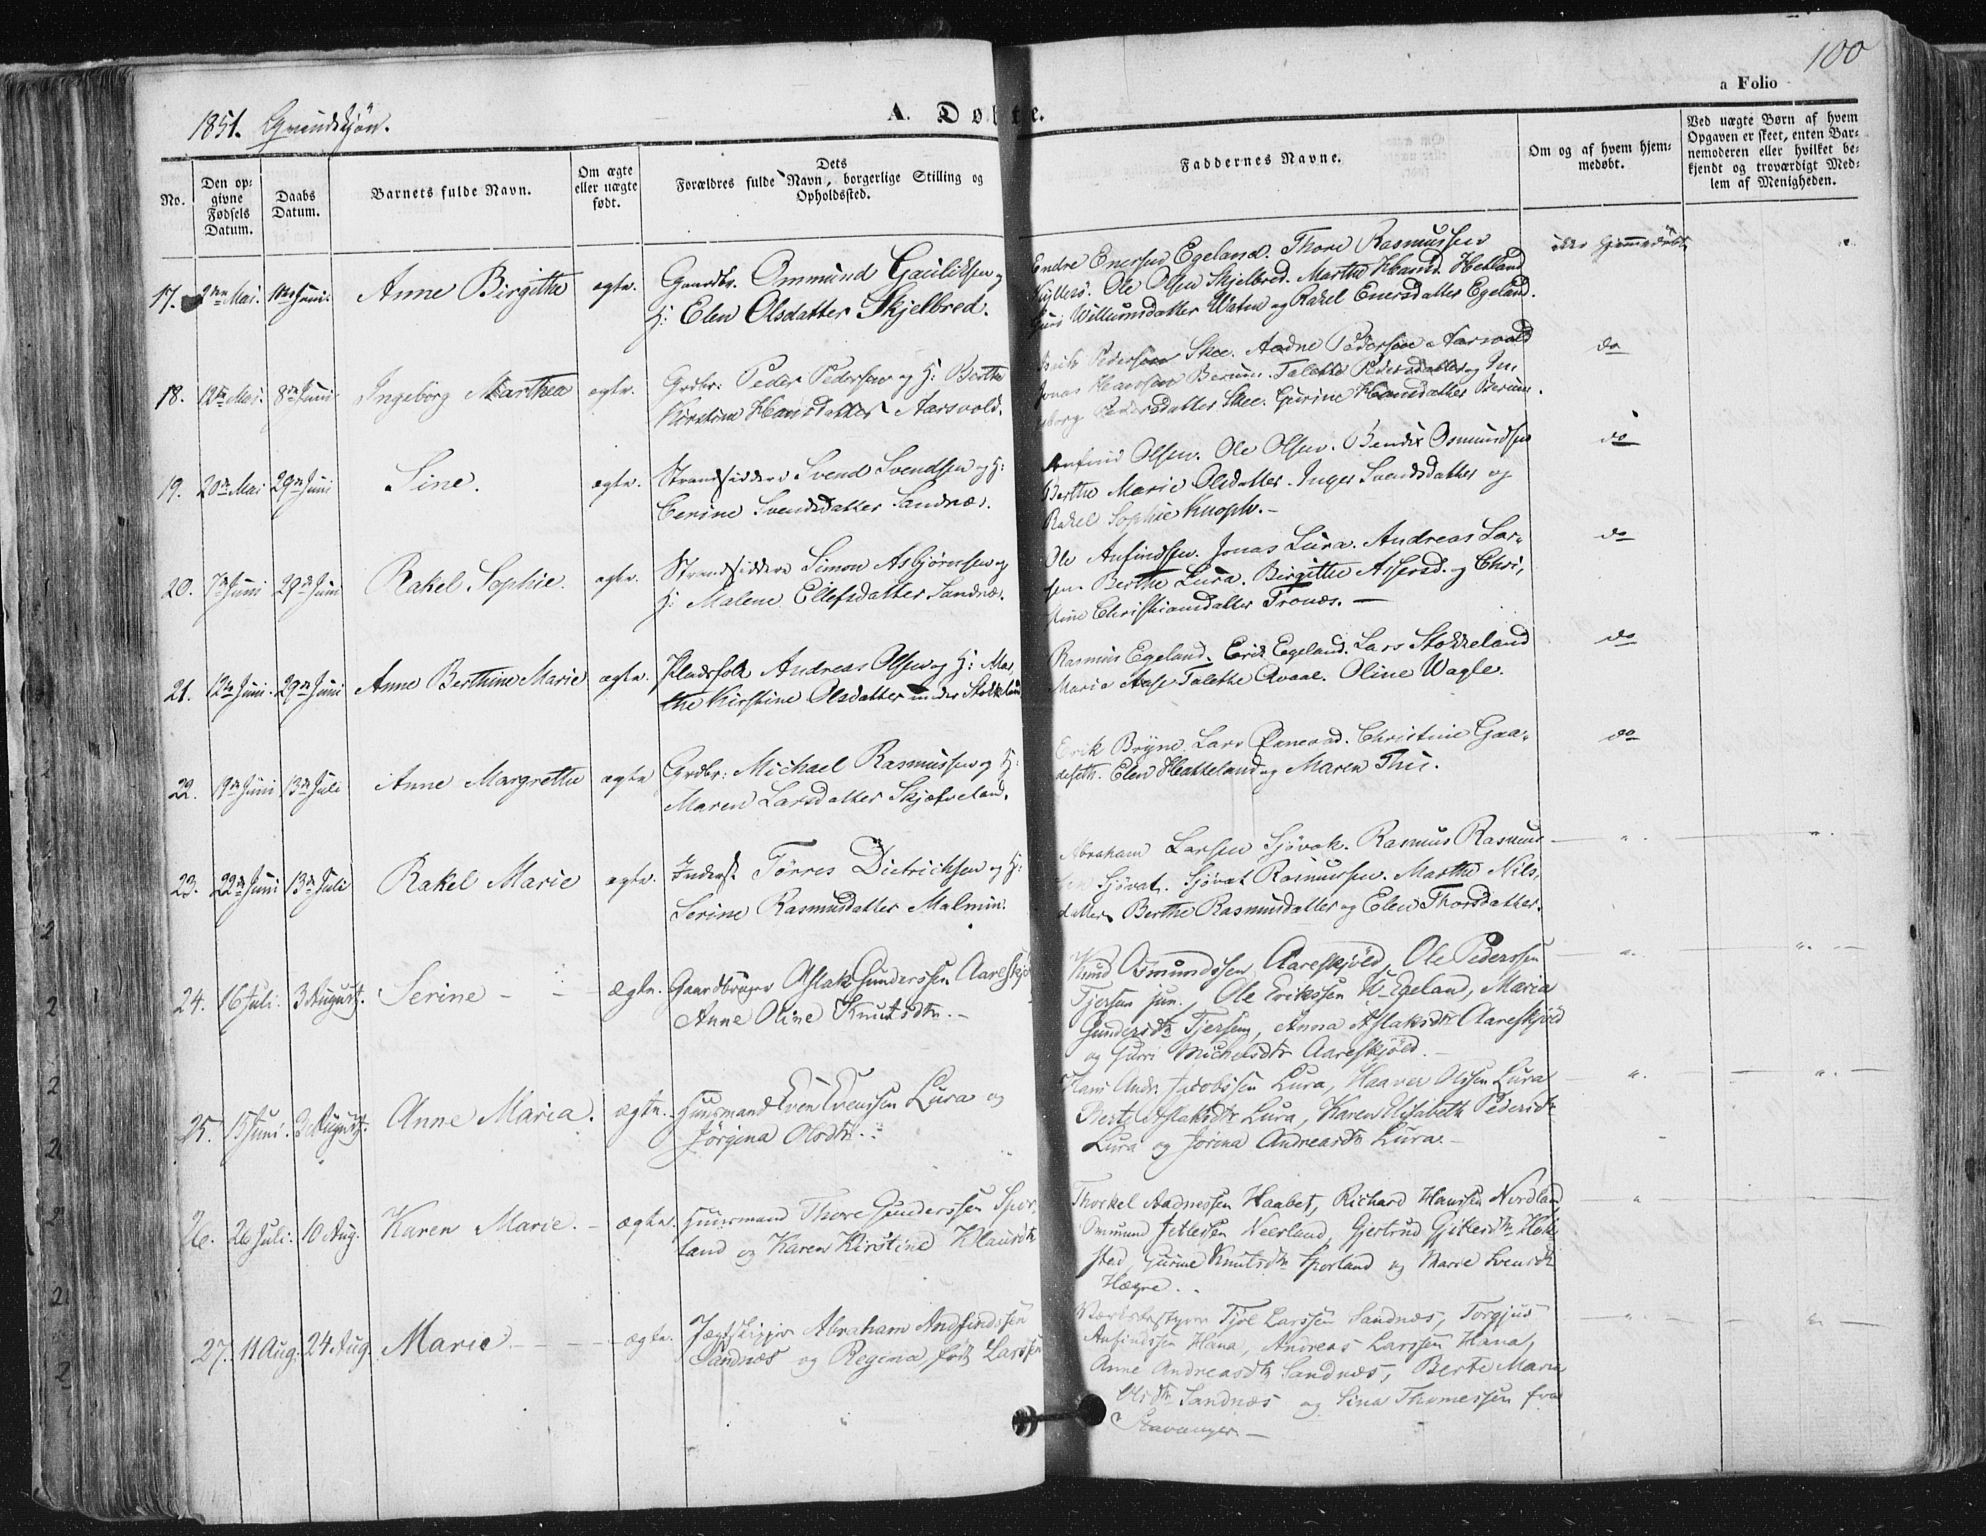 100
a Folio
1851. Qvindekjøn.
A. Døbte.
No.
Den opgivne Fødsels Datum.
Daabs Datum.
Barnets fulde Navn.
Om ægte eller uægte født.
Dets Forældres fulde Navn, borgerlige Stilling og Opholdssted.
Faddernes Navne.
Om og af hvem hjemmedøbt.
Ved uægte Børn af hvem Opgaven er skeet, enten Barnemoderen eller hvilket bekjendt og troværdigt Medlem af Menigheden.
17. Mai. Juni. Anne Birgitha ægte. Gaardbr. Ommund
H: Elen Olsdatter Skjelbred.
Endre Enersen Egeland. Thore Rasmussen
Ole Olsen Skjelbred. Martha Hetland
Willumsdatter Watne og Rakel Enersdatter Egeland.
ikke hjemmedøbt
18. 12te Mai. 8de Juni Ingeborg Marthea ægte. Grdbr: Peder Pedersen og H: Berthe
Kirstine Hansdatter Aarsvold.
Pedersen Skee. Aadne Pedersen Aarsvold
Jonas Hansen Berum. Talette Pedersdatter og In-
geborg Pedersdatter Skee. Gurine Hansdatter Berum.
do
19. 20de Mai 29de Juni Sine. ægte. Strandsidder Svend Svendsen og H:
Cerine Svendsdatter Sandnæs.
Anfind Olsen. Ole Olsen. Bendix Osmundsen
Berthe Marie Olsdatter. Inger Svendsdatter og
Rakel Sophie Knoph.
do
20. 7de Juni 29de Juni Rakel Sophie. ægte. Strandsidder Simon Asbjørnsen og
H: Malene Ellefsdatter Sandnæs.
Ole Anfindsen. Jonas Lura. Andreas Lar-
sen. Berthe Lura. Birgitte Assersd. og Chri-
stine Christiansdatter Tronæs.
do
21. 12te Juni 29de Juni Anne Berthine Marie ægte. Pladsfolk Andreas Olsen og H: Mar-
the Kirstine Olsdatter under Stokkeland
Rasmus Egeland. Erik Egeland. Lars Stokkeland
Maria Aase Talethe Qvaal. Oline Wagle.
do
22. 9de Juni 13de Juli Anne Margrethe ægte Grdbr: Michael Rasmussen og H:
Maren Larsdatter Skjæveland.
Erik Bryne. Lars Christine Gaa-
deseth. Elen Hatteland og Maren Thu.
do
23. 22de Juni 13de Juli Rakel Marie ægte. Inderst Tørres Dietrichsen og H:
Serine Rasmusdatter Malmin.
Abraham Larsen Sjøvat. Rasmus Rasmus-
sen Sjøvat. Sjøvat Rasmussen. Marthe Nils-
datter. Berthe Rasmusdatter og Elen Thorsdatter.
24. 16 Juli. 3 August. Serine ægte. Gaardbruger Aslak Gunderssen Aareskjold
Anne Oline Knutsdtr.
Knud Osmundssen Aareskjold, Ole Pederssen
Tjersem jun., Ole Erikssen Egeland, Maria
Gundersdtr Tjersem, Anna Aslaksdtr Aareskjold
og Gurri Michelsdtr Aareskjold.
25. 15 Juni. 3 August. Anne Maria. ægte. Huusmand Even Evenssen Lura og
Jørgina Olsdtr.
Hans Andr. Jacobssen Lura, Haaver Olssen Lura
Berte Aslaksdtr Lura, Karen Elisabeth Pedersdtr
Lura og Jorina Andreasdtr Lura.
26. 26 Juli. 10 Aug. Karen Marie. ægte. Huusmand Thore Gunderssen Spor-
land og Karen Kirstine Klausdtr
Thorkel Aadnessen Haabet, Richard Hanssen Nordland
Ommund Jetlessen Neerland, Gjertrud
Gurine Knutsdtr Sporland og Marie Svensdtr
Hægre.
27. 11 Aug. 24 Aug. Marie. ægte. Jægtskipper Abraham Andfindssen
Sandnæs og Regina født Larssen
Tjøl Larssen Sandnæs, Torgjus
Anfindssen Hana, Andreas Larssen Hana,
Anne Andreasdtr Sandnæs, Berte Maria
Olsdtr Sandnæs og Sina Thomessen fra
Stavanger.